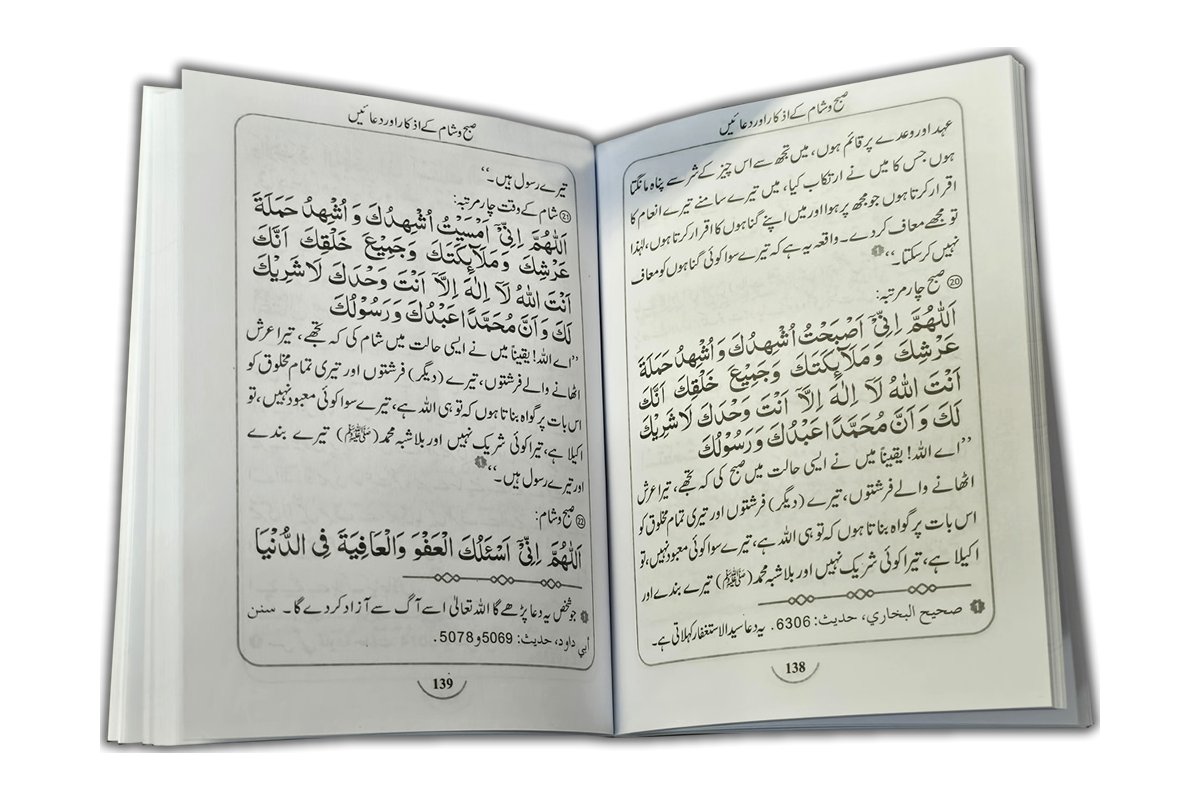 صبح و شام کے اذکار اور دعائیں
عہد اور وعدے پر قائم ہوں، میں تجھ سے اس چیز کے شر سے پناہ مانگتا
ہوں جس کا میں نے ارتکاب کیا، میں تیرے سامنے تیرے انعام کا
اقرار کرتا ہوں جو مجھ پر ہوا اور میں اپنے گناہوں کا اقرار کرتا ہوں، لہٰذا
تو مجھے معاف کر دے۔ واقعہ یہ ہے کہ تیرے سوا کوئی گناہوں کو معاف
نہیں کر سکتا۔‘‘ 1
20 صبح چار مرتبہ:
اَللّٰهُمَّ اِنِّيْٓ اَصْبَحْتُ اُشْهِدُكَ وَ اُشْهِدُ حَمَلَةَ
عَرْشِكَ وَمَلَآئِكَتَكَ وَجَمِيْعَ خَلْقِكَ اَنَّكَ
اَنْتَ اللّٰهُ لَآ اِلٰهَ اِلَّآ اَنْتَ وَحْدَكَ لَا شَرِيْكَ
لَكَ وَ اَنَّ مُحَمَّدًا عَبْدُكَ وَ رَسُوْلُكَ
’’اے اللہ! یقیناً میں نے ایسی حالت میں صبح کی کہ تجھے، تیرا عرش
اٹھانے والے فرشتوں، تیرے (دیگر) فرشتوں اور تیری تمام مخلوق کو
اس بات پر گواہ بناتا ہوں کہ تو ہی اللہ ہے، تیرے سوا کوئی معبود نہیں، تو
اکیلا ہے، تیرا کوئی شریک نہیں اور بلاشبہ محمد (ﷺ) تیرے بندے اور
1 صحيح البخاري، حديث: 6306. یہ دعا سید الاستغفار کہلاتی ہے۔
138
صبح و شام کے اذکار اور دعائیں
تیرے رسول ہیں۔‘‘
21 شام کے وقت چار مرتبہ:
اَللّٰهُمَّ اِنِّيْٓ اَمْسَيْتُ اُشْهِدُكَ وَ اُشْهِدُ حَمَلَةَ
عَرْشِكَ وَمَلَآئِكَتَكَ وَجَمِيْعَ خَلْقِكَ اَنَّكَ
اَنْتَ اللّٰهُ لَآ اِلٰهَ اِلَّآ اَنْتَ وَحْدَكَ لَا شَرِيْكَ
لَكَ وَ اَنَّ مُحَمَّدًا عَبْدُكَ وَ رَسُوْلُكَ
’’اے اللہ! یقیناً میں نے ایسی حالت میں شام کی کہ تجھے، تیرا عرش
اٹھانے والے فرشتوں، تیرے (دیگر) فرشتوں اور تیری تمام مخلوق کو
اس بات پر گواہ بناتا ہوں کہ تو ہی اللہ ہے، تیرے سوا کوئی معبود نہیں، تو
اکیلا ہے، تیرا کوئی شریک نہیں اور بلاشبہ محمد (ﷺ) تیرے بندے
اور تیرے رسول ہیں۔‘‘ 1
22 صبح و شام:
اَللّٰهُمَّ اِنِّيْٓ اَسْئَلُكَ الْعَفْوَ وَالْعَافِيَةَ فِي الدُّنْيَا
1 جو شخص یہ دعا پڑھے گا اللہ تعالیٰ اسے آگ سے آزاد کر دے گا۔ سنن
أبي داود، حديث: 5069 و 5078.
139